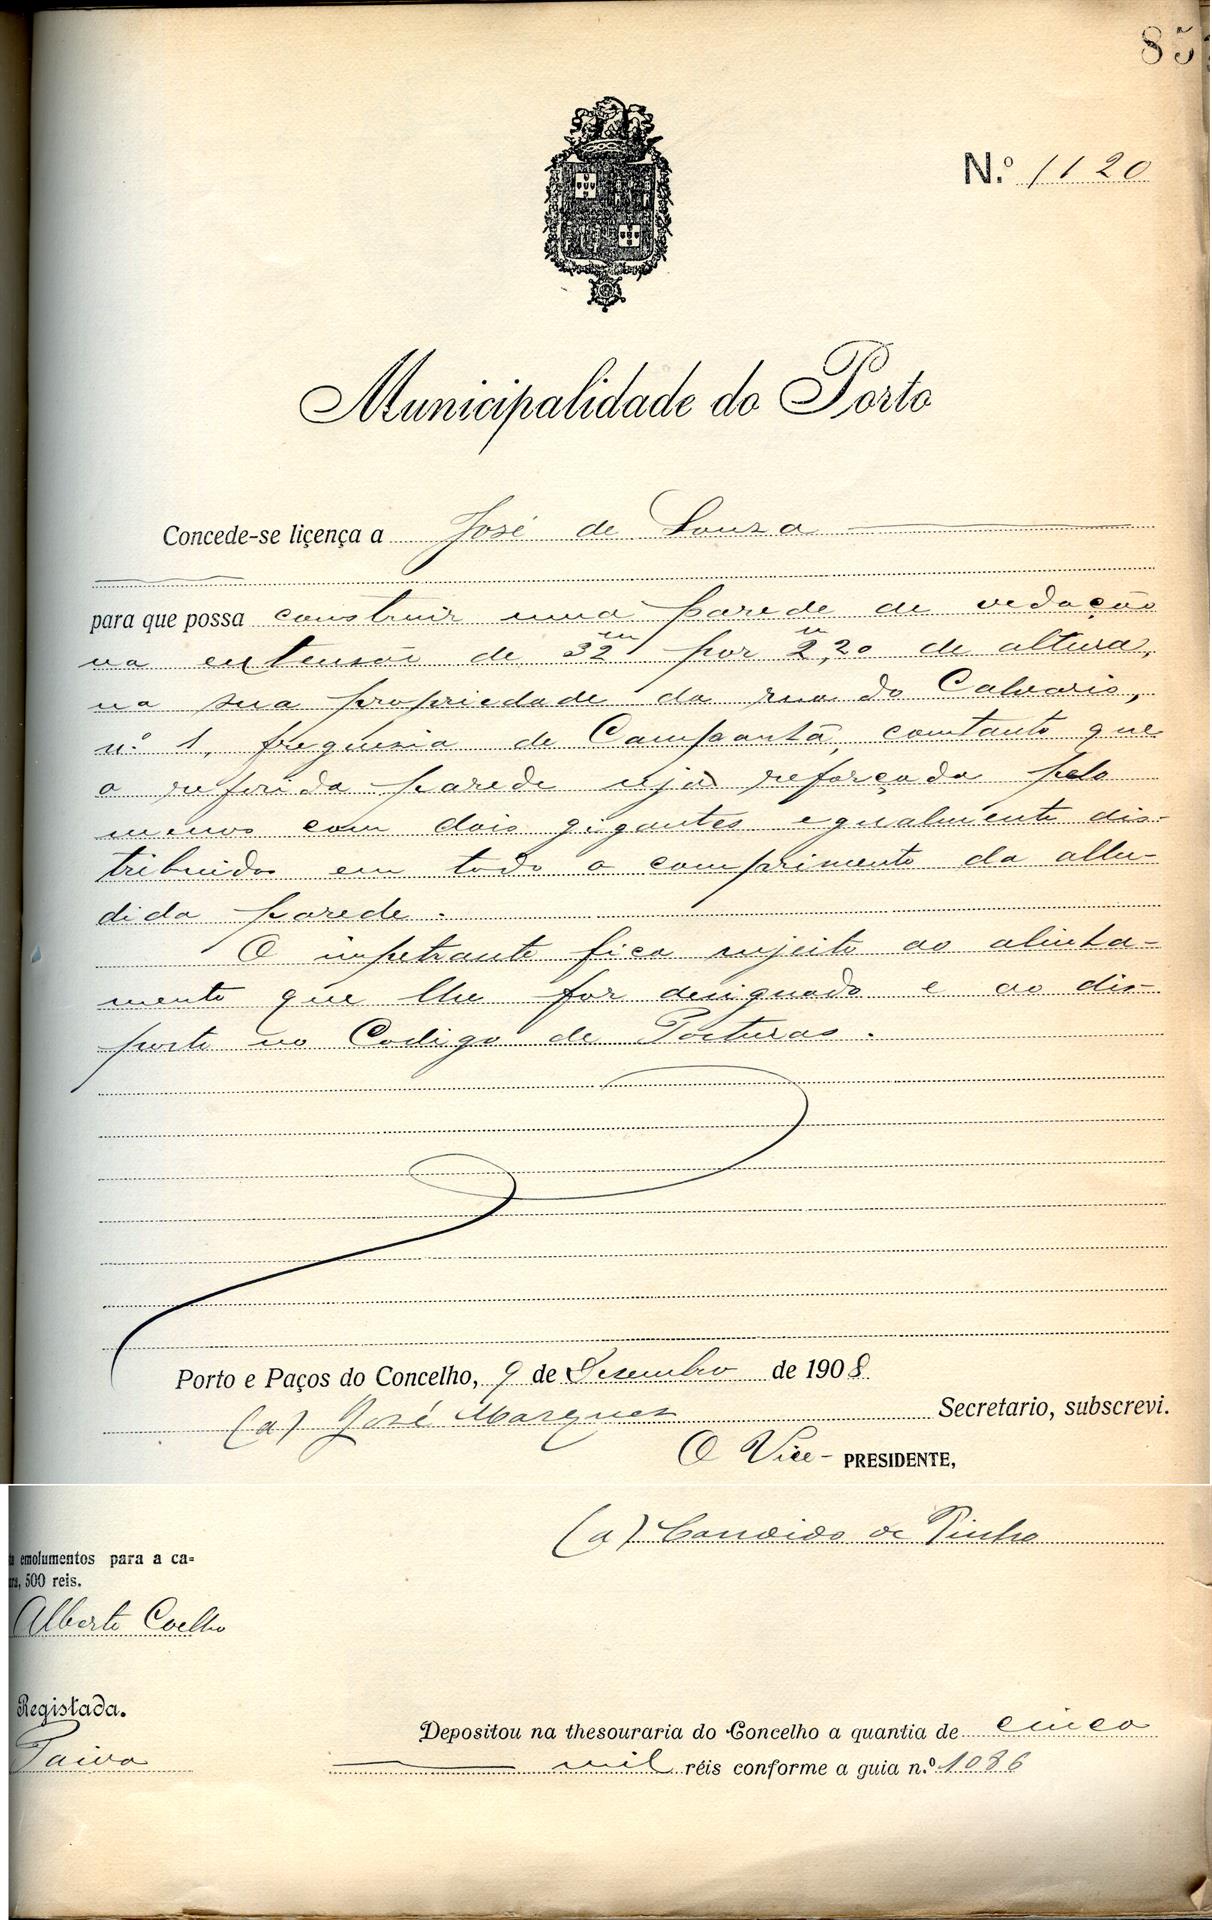 85
N.º 1120
Municipalidade do Porto
Concede-se liçença a José de Souza
para que possa construir uma parede de vedação
na extensão de 32m por 2m,20 de altura,
na sua propriedade da rua do Calvario,
n.º 1, freguezia de Campanhã, comtanto que
a referida parede seja reforçada pelo
menos com dois gigantes egualmente dis-
tribuidos em todo o comprimento da allu-
dida parede.
O impetrante fica sujeito ao alinha-
mento que lhe for designado e ao dis-
posto no Codigo de Posturas.
Porto e Paços do Concelho, 9 de Dezembro de 1908
(a) José Marques Secretario, subscrevi.
O Vice-PRESIDENTE,
(a) Candido de Pinho
emolumentos para a ca-
ra, 500 reis.
Alberto Coelho
Registada.
Paiva
Depositou na thesouraria do Concelho a quantia de cinco
mil réis conforme a guia n.º 1086